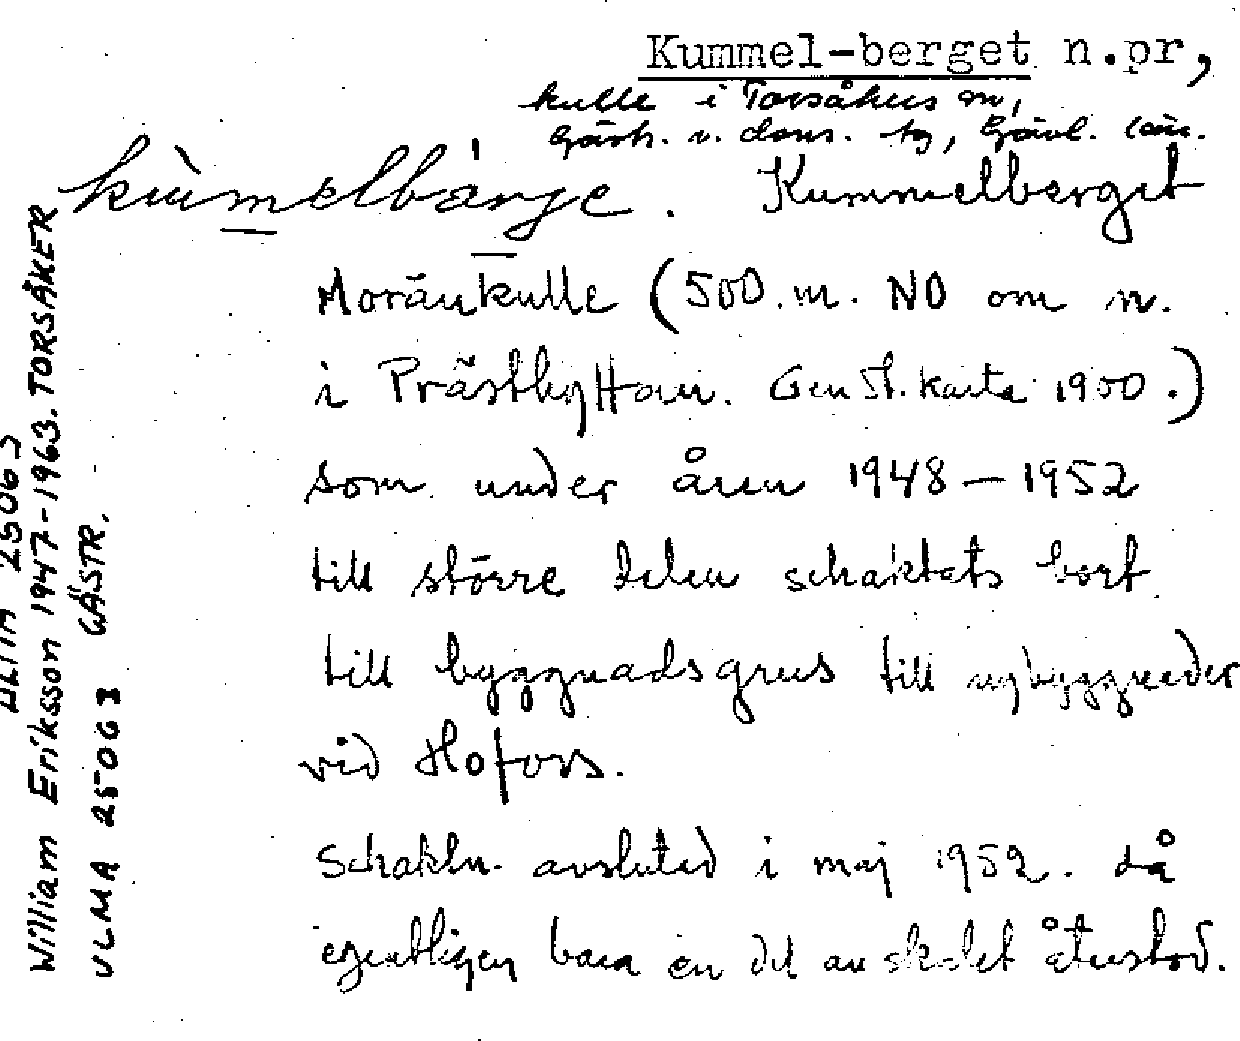 Kummel-berget n.pr,
kulle i Torsåkers sn,
Gästr. v. doms. tg, Gävl. län.
kùmelbárje. Kummelberget
Moränkulle (500.m. NO om n.
i Prästhyttan. Gen St. karta 1900.)
som under åren 1948 – 1952
till större delen schaktats bort
till byggnadsgrus till nybyggnader
vid Hofors.
Schaktn. avslutad i maj 1952. då
egentligen bara en del av skalet återstod.
ULMA 25063
William Eriksson 1947-1963. TORSÅKER
ULMA 25063 GÄSTR.